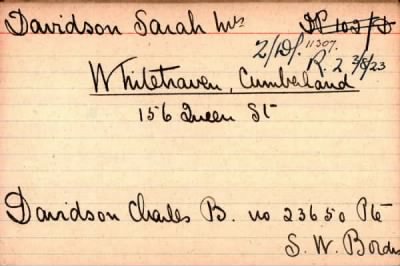 Davidson Sarah Mrs
2/Df. 11307.
R. 2 3/8/23
Whitehaven, Cumberland
156 Queen St
Davidson Charles B. no 23650 Pte
S. W. Bords